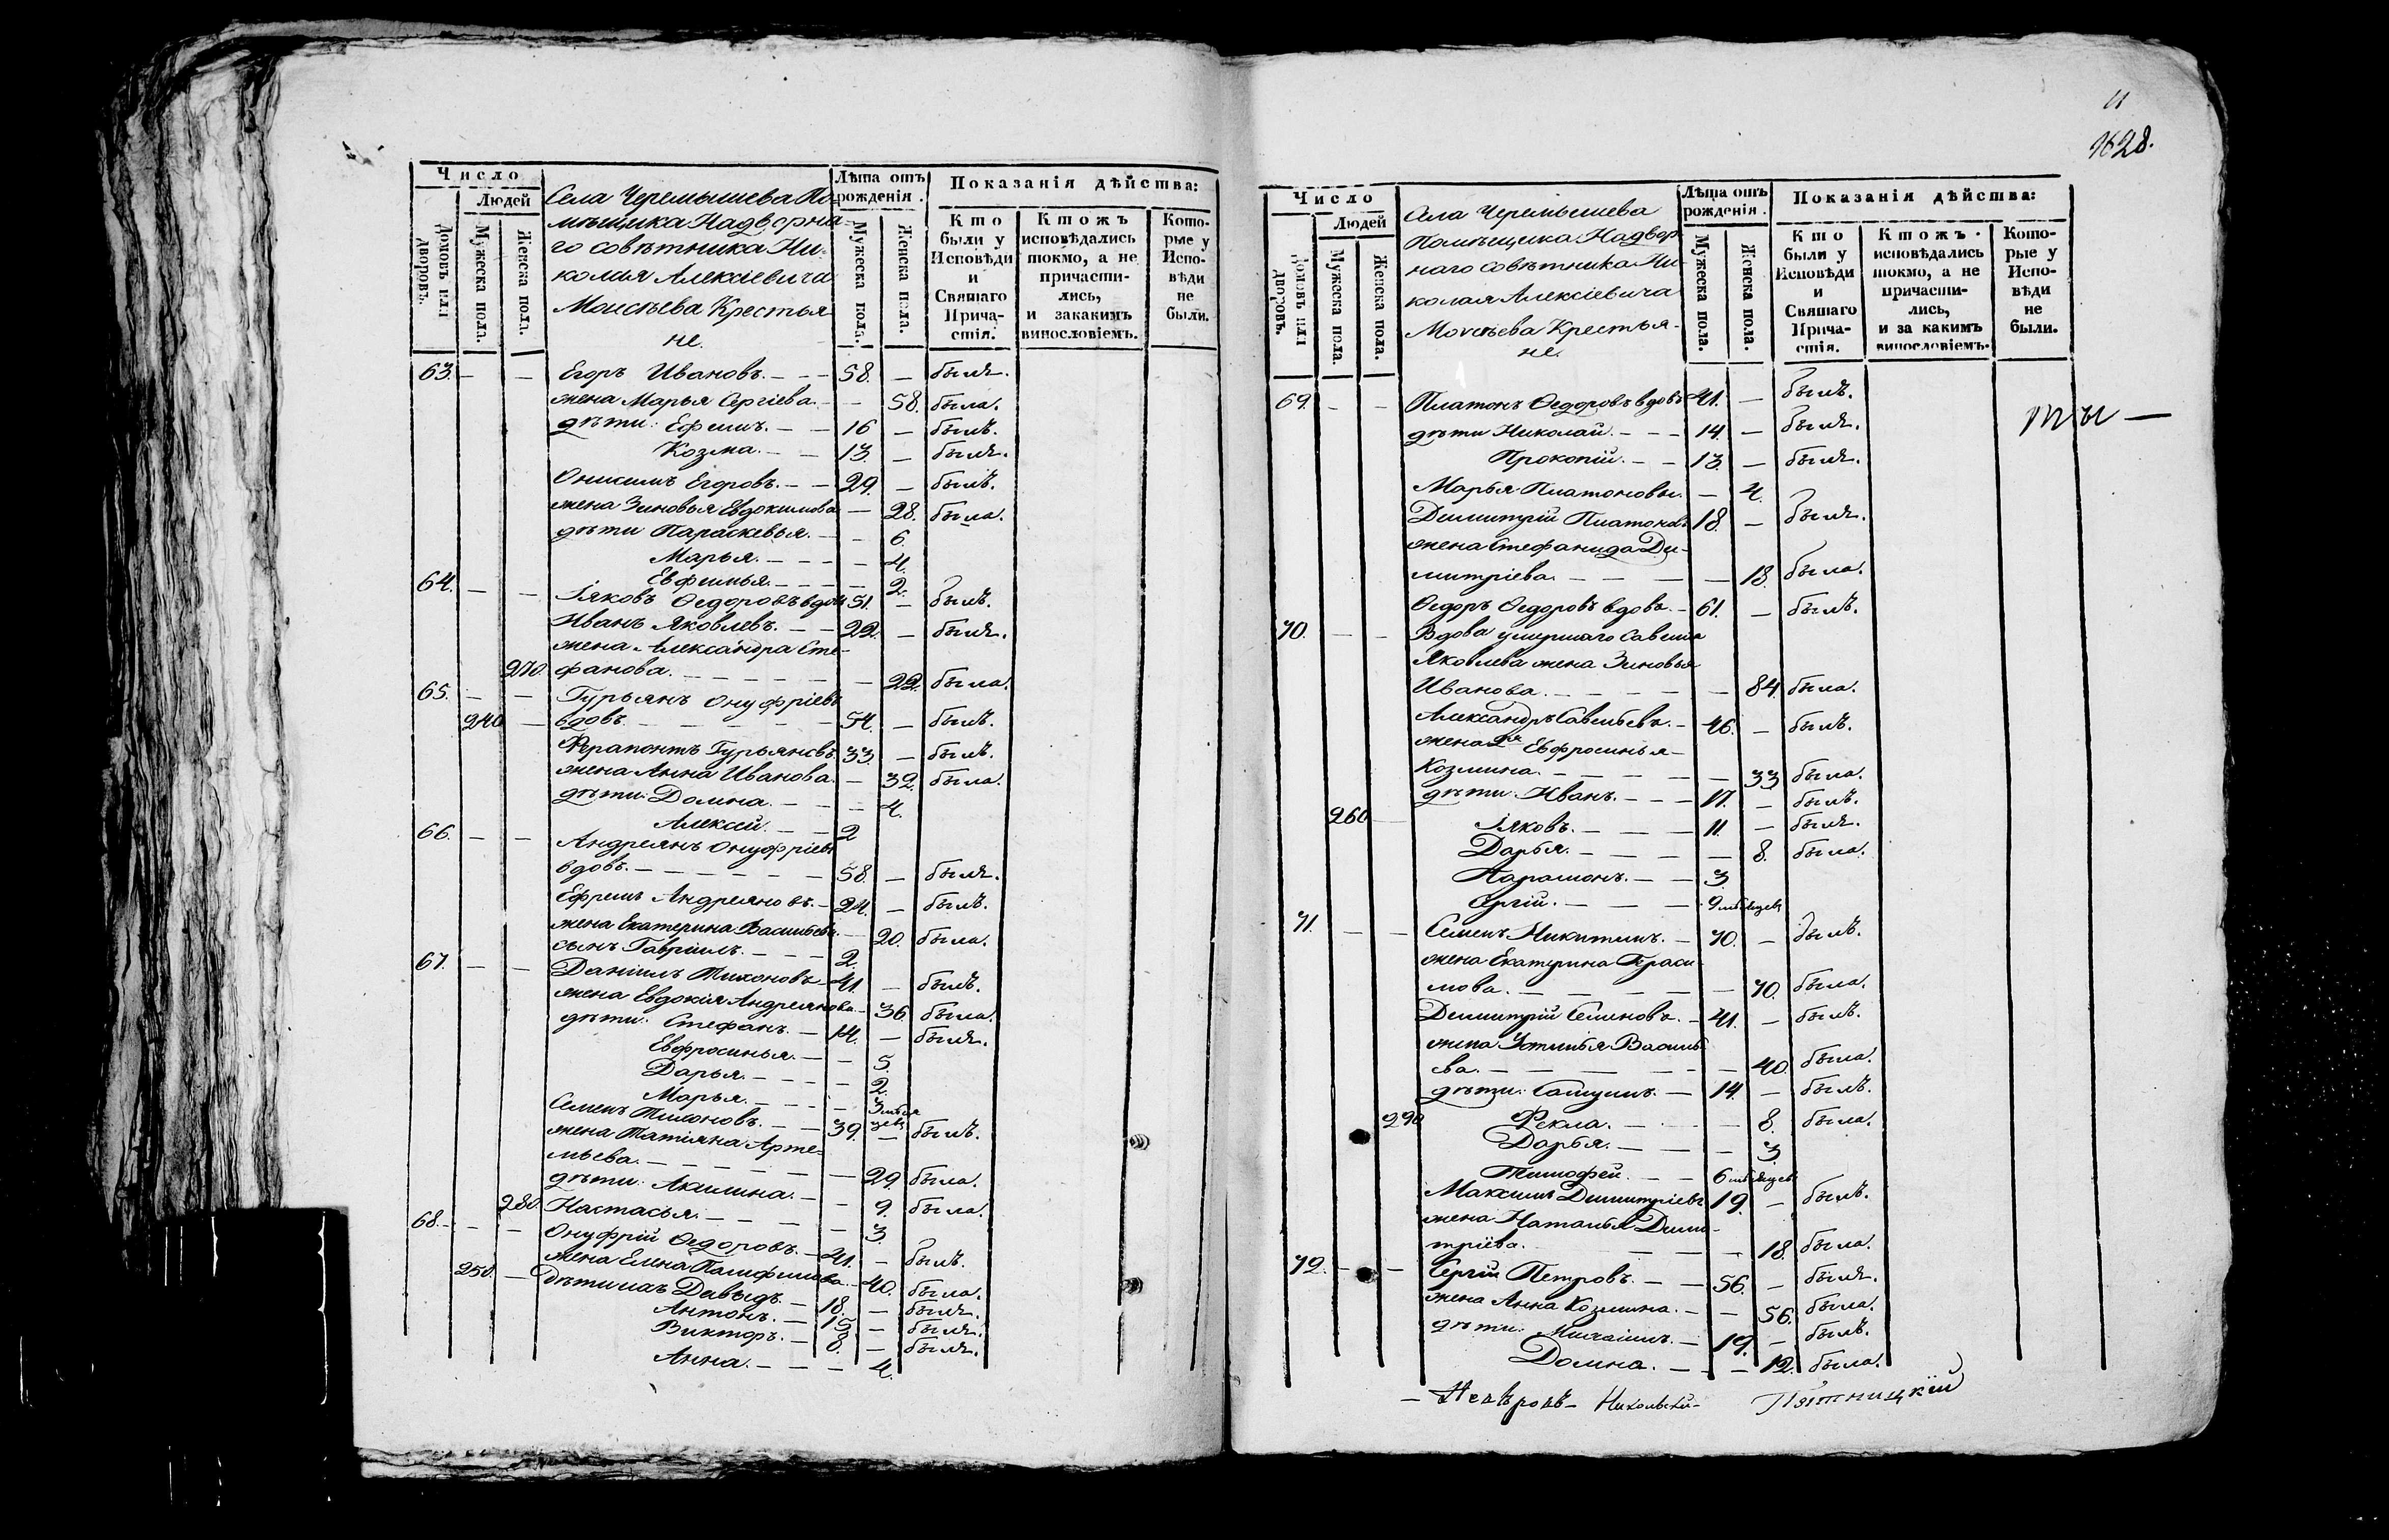 Число
Людей
Домовъ или дворовъ.
Мужеска пола.
Женска пола.
Села Черемышева По-
мѣщика Надворна-
го совѣтника Ни-
колая Алексіевича
Моисѣева Крестья-
не.
Лѣта отъ рожденія.
Мужеска пола.
Женска пола.
Показанія дѣйства:
Кто были у Исповѣди и Святаго Прича-стія.
Ктожъ исповѣдались токмо, а не причасти-лись, и закакимъ винословіемъ.
Кото-рые у Испо-вѣди не были.
63. — — Егоръ Ивановъ. — — 58. — былъ.
жена Марья Сергіева. — — 58. была.
дѣти: Ефимъ. — — 16 — былъ.
Козма. — — 13. — былъ.
Онисимъ Егоровъ. — — 29. — былъ.
жена Зиновья Евдокимова — 28. была.
дѣти Параскевья. — — 6.
Марья. — — — 4.
Евфимья. — — — 2.
64. — — Іяковъ Ѳедоровъ вдовъ 51. — былъ.
Иванъ Яковлевъ. — — 22. — былъ.
жена Александра Сте-
270. фанова. — — — 22. была.
65. — — Гурьянъ Онуфріевъ
240 — вдовъ. — — — 54. — былъ.
Ферапонтъ Гурьяновъ 33. — былъ.
жена Анна Иванова. — 32. была.
дѣти: Домна. — — — 4.
Алексей. — — 2
66. — — Андреянъ Онуфріевъ
вдовъ. — — — 58. — былъ.
Ефремъ Андреяновъ. — 24. — былъ.
жена Екатерина Васильева. — 20. была.
сынъ Гавріилъ. — — — 2.
67. — — Даніилъ Тихоновъ — 41. — былъ.
жена Евдокія Андреянова — 36. была.
дѣти: Стефанъ. — 14. — былъ.
Евфросинья. — — 5.
Дарья. — — — 2.
Марья. — — — 3 мѣся
цевъ
Семенъ Тихоновъ. — — 39. — былъ.
жена Татіяна Арте-
мьева. — — — 29. была.
дѣти: Акилина. — — 9. была.
280. Настасья. — — — 3.
68. — — Онуфрій Ѳедоровъ. — 41. — былъ.
жена Елена Памфилова — 40. была.
250. — Дѣти ихъ Давыдъ. — 18. — былъ.
Антонъ. — 15 — былъ.
Викторъ. — 8. — былъ.
Анна. — — — 4.
11
1628.
Число
Людей
Домовъ или дворовъ.
Мужеска пола.
Женска пола.
Села Черемышева
Помѣщика Надвор-
наго совѣтника Ни-
колая Алексіевича
Моѵсѣева Крестья-
не.
Лѣта отъ рожденія.
Мужеска пола.
Женска пола.
Показанія дѣйства:
Кто были у Исповѣди и Святаго Прича-стія.
Ктожъ исповѣдались токмо, а не причасти-лись, и за какимъ винословіемъ.
Кото-рые у Испо-вѣди не были.
69. — — Платонъ Ѳедоровъ вдовъ 41. — былъ.
ты —
дѣти Николай. — — — 14. — былъ.
Прокопій. — — 13. — былъ.
Марья Платоновы. — 4.
Димитрій Платоновъ 18. — былъ.
жена Стефанида Ди-
митріева. — — — 18. была.
Ѳедоръ Ѳедоровъ вдовъ. — 61. — былъ.
70. — — Вдова умершаго Савелія
Яковлева жена Зиновья
Иванова. — — — 84. была.
Александръ Савельевъ. — 46. — былъ.
жена 2я Евфросинья
Козмина. — — — 33 была.
дѣти: Иванъ. — — — 17. — былъ.
260 — Іяковъ. — — — 11. — былъ.
Дарья. — — — 8. была.
Парамонъ. — — 3.
Сергій. — — — 9 мѣсяцевъ
71. — — Семенъ Никитинъ. — 70. — былъ.
жена Екатерина Гераси-
мова. — — — 70. была.
Димитрій Семеновъ. — 41. — былъ.
жена Устинья Василь
ева. — — — 40. была.
дѣти: — 14. — былъ.
290 Фекла. — — 8. была.
Дарья. — — — 3.
Тимофей. — — 6 мѣсяцевъ
Максимъ Димитріевъ 19. — былъ.
жена Наталья Дими-
тріева. — — — 18. была.
72. — — Сергій Петровъ. — — 56. — былъ.
жена Анна Козмина. — — 56. была.
дѣти: Михаилъ. — 19. — былъ.
Домна. — — 12. была.
— Невѣровъ — Никольскій — Пятницкій